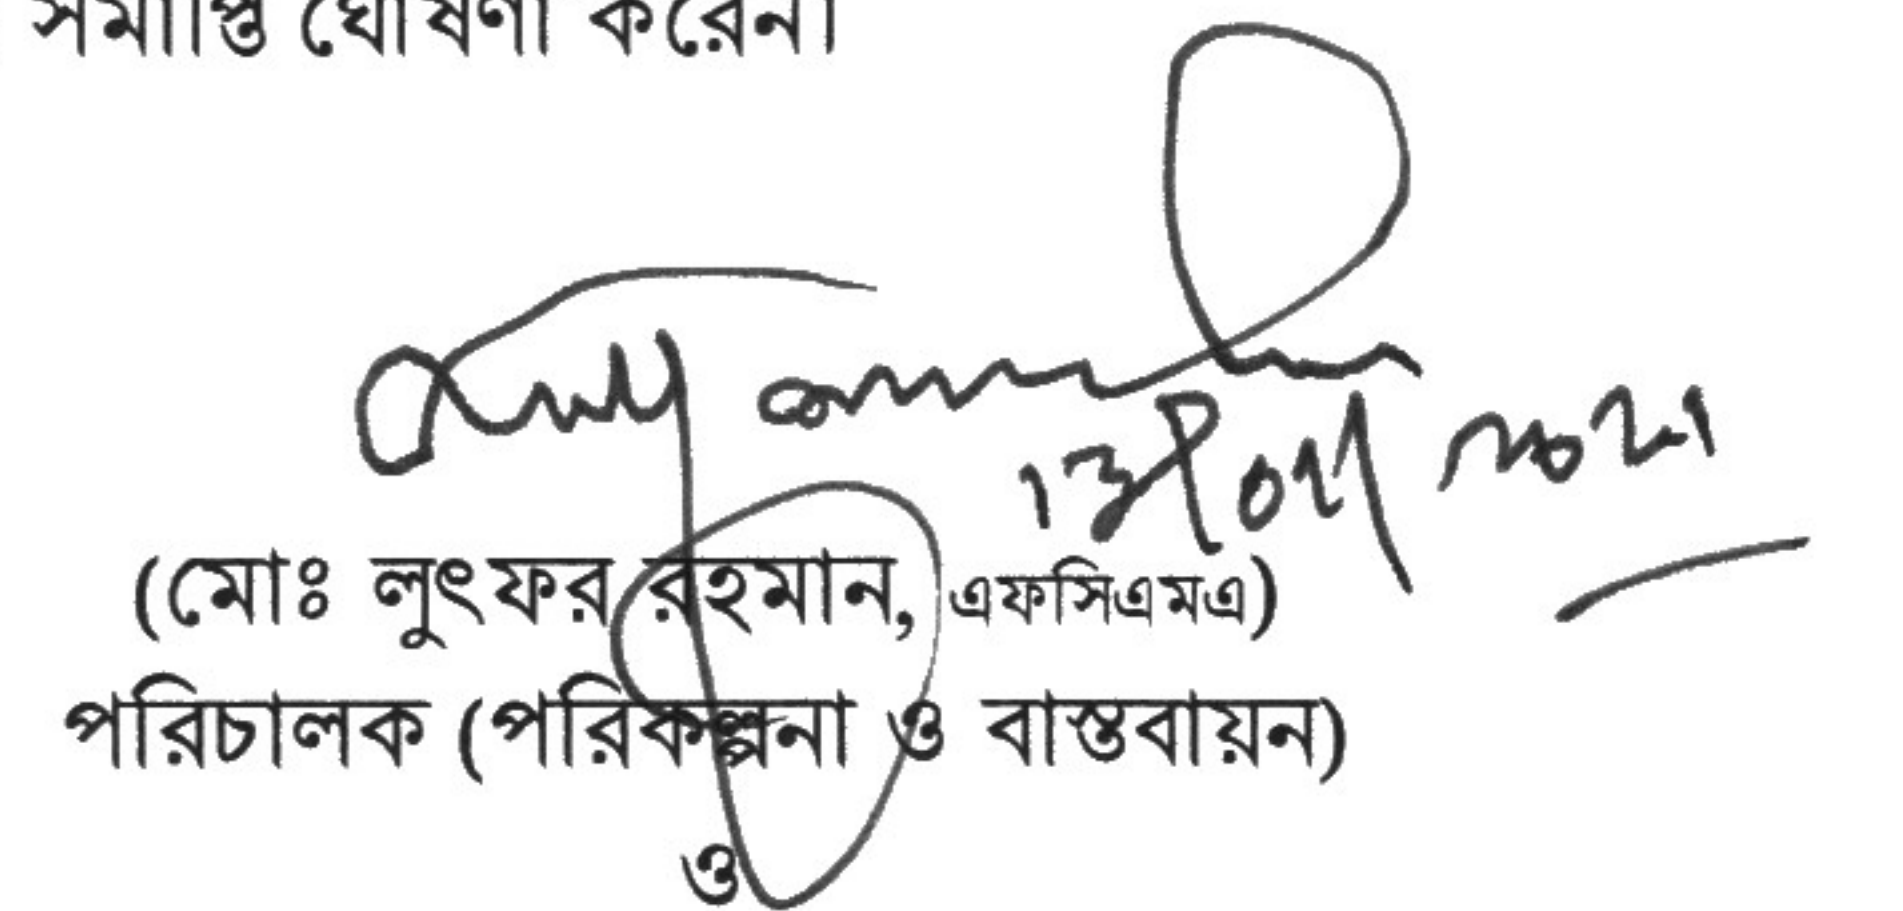 সমাপ্তি ঘোষণা করেন।
(মোঃ লুৎফর রহমান, এফসিএমএ)
পরিচালক (পরিকল্পনা ও বাস্তবায়ন)
ও